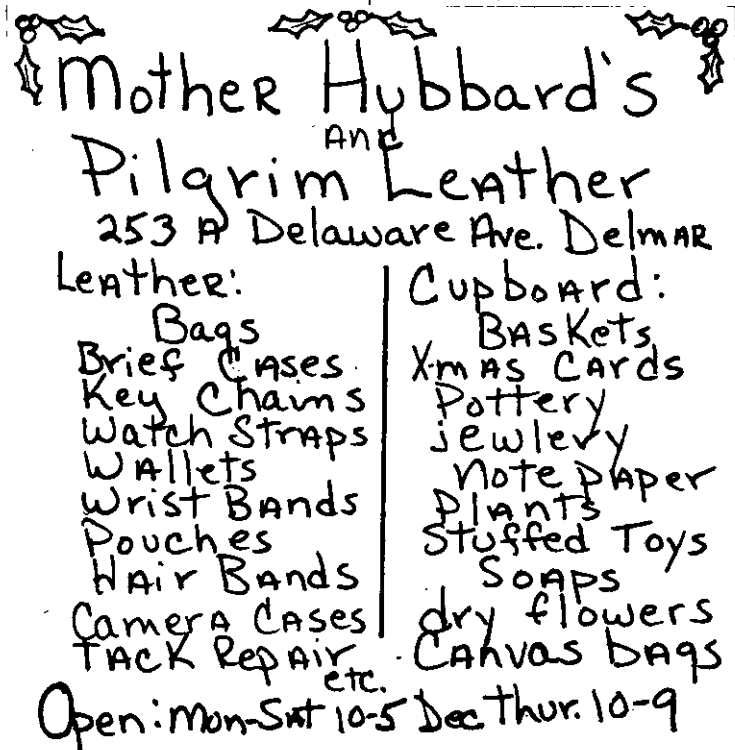 Mother Hubbard's
and
Pilgrim Leather
253 A Delaware Ave. Delmar
Leather:
Bags
Brief Cases
Key Chains
Watch Straps
Wallets
Wrist Bands
Pouches
Hair Bands
Camera Cases
Tack Repair
etc.
Cupboard:
Baskets
X-mas Cards
Pottery
jewlery
note paper
Plants
Stuffed Toys
Soaps
dry flowers
Canvas bags
Open: Mon-Sat 10-5 Dec Thur. 10-9